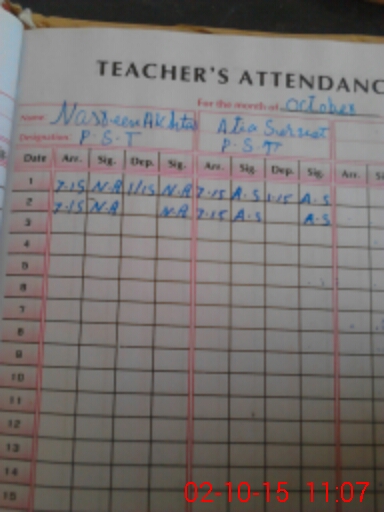 TEACHER'S ATTENDANC
For the month of October
Name Nasreen Akhtar Atia
Designation P.S.T P.S.T
Date Arr. Sig. Dep. Sig. Arr. Sig. Dep. Sig. Arr.
1 7.15 N.A 1/15 N.A 7.15 A.S 1.15 A.S
2 7.15 N.A N.A 7.15 A.S A.S
3
4
5
6
7
8
9
10
11
12
13
14
15
02-10-15 11:07